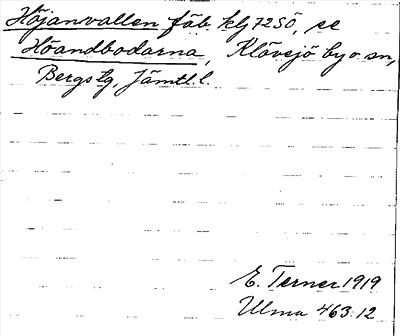 Höjanvallen fäb. klj 72SÖ, se
Höandbodarna, Klövsjö by o sn,
Bergs tg, Jämtl. l.
E. Terner 1919
Ulma 463:12